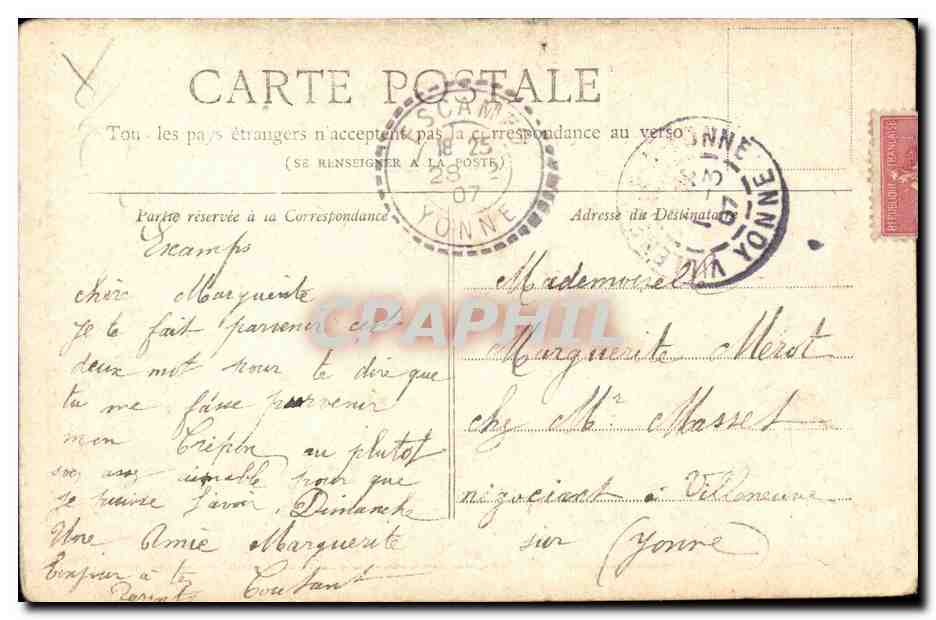 CARTE POSTALE
Tous les pays étrangers n'acceptent pas la correspondance au verso
(SE RENSEIGNER A LA POSTE)
ESCAMPS
18 25
28 2
07
YONNE
YONNE
07
YONNE
REPUBLIQUE FRANÇAISE
Partie réservée à la Correspondance
Adresse du Destinataire
Escamps
chère Marguerite
Je te fait parvenir cest
deux mot pour te dire que
tu me fasse parvenir
mon Crépon au plutot
aimable pour que
Je puisse l'avoir Dimanche
Une Amie Marguerite
Coutant
Bonjour à tes
Parents
Mademoiselle
Marguerite Mérot
chez Mr Masset
négociant à Villeneuve
sur (Yonne)
CPAPHIL